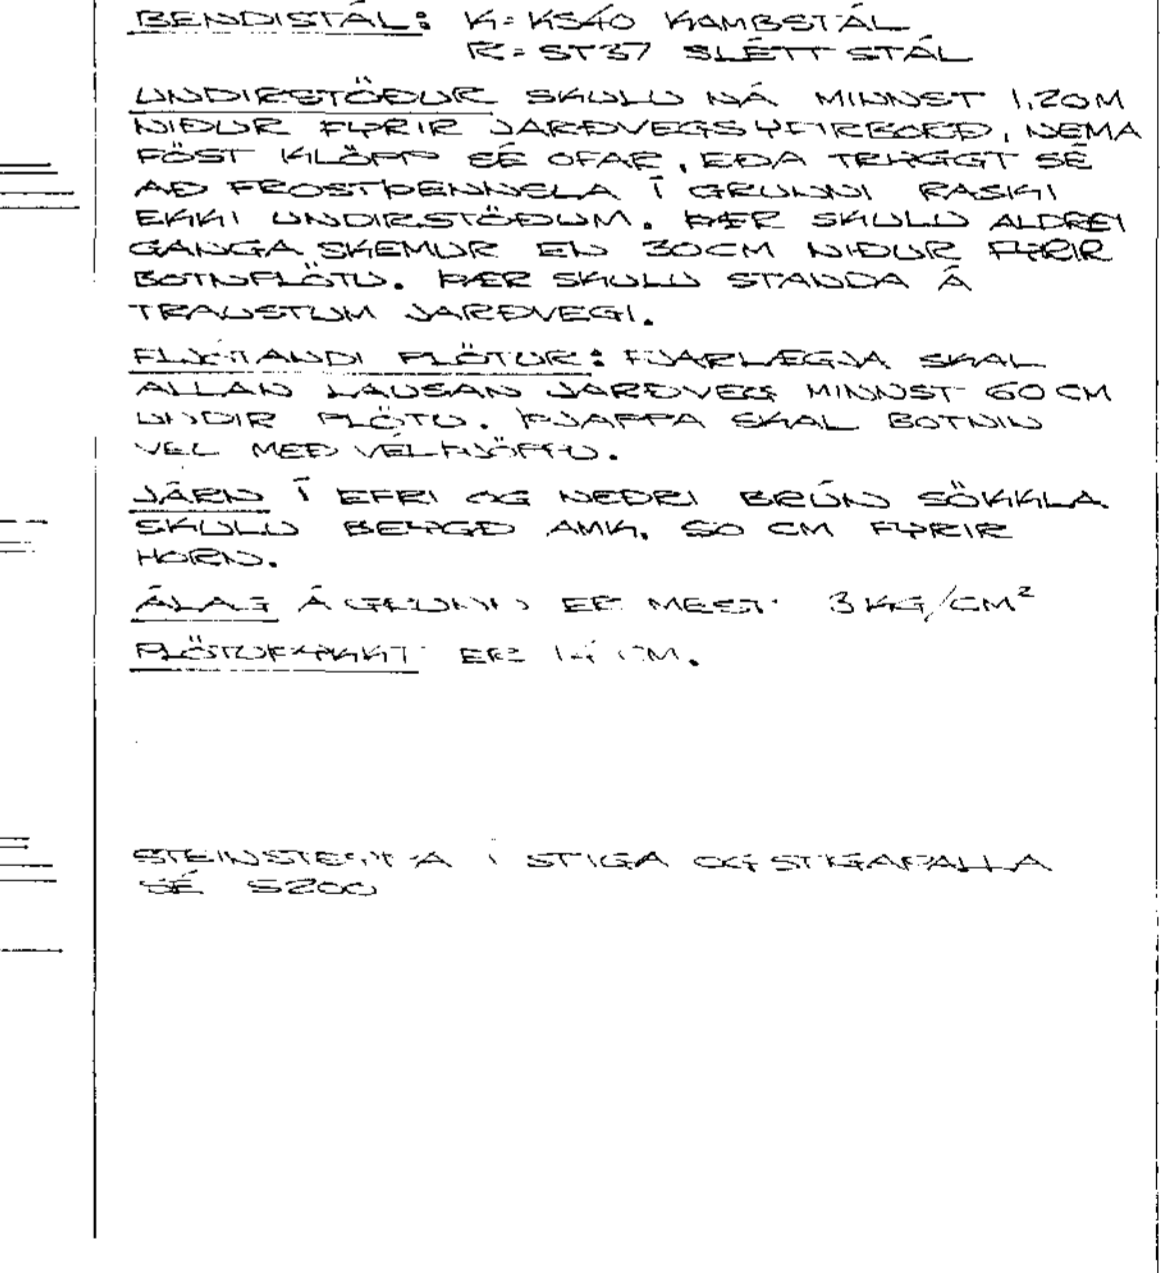 BENDISTÁL: K=KS40 KAMBSTÁL
R=ST37 SLÉTT STÁL
UNDIRSTÖÐUR SKULU NÁ MINNST 1,20M
NIÐUR FYRIR JARÐVEGSYFIRBORÐ, NEMA
FÖST KLÖPP SÉ OFAR, EÐA TRYGGT SÉ
AÐ FROSTÞENNSLA Í GRUNNI RASKI
EKKI UNDIRSTÖÐUM. ÞÆR SKULU ALDREI
GANGA SKEMUR EN 30CM NIÐUR FYRIR
BOTNPLÖTU. ÞÆR SKULU STANDA Á
TRAUSTUM JARÐVEGI.
FLJÓTANDI PLÖTUR: FJARLÆGJA SKAL
ALLAN LAUSAN JARÐVEG MINNST 60 CM
UNDIR PLÖTU. ÞJAPPA SKAL BOTNIN
VEL MEÐ VÉLÞJÖPPU.
JÁRN Í EFRI OG NEÐRI BRÚN SÖKKLA
SKULU BEYGÐ AMK. 50 CM FYRIR
HORN.
ÁLAG Á GRUNN ER MEST 3 KG/CM²
PLÖTUÞYKKT ER 14 CM.
STEINSTEYPA Í STIGA OG STIGAPALLA
SÉ S200